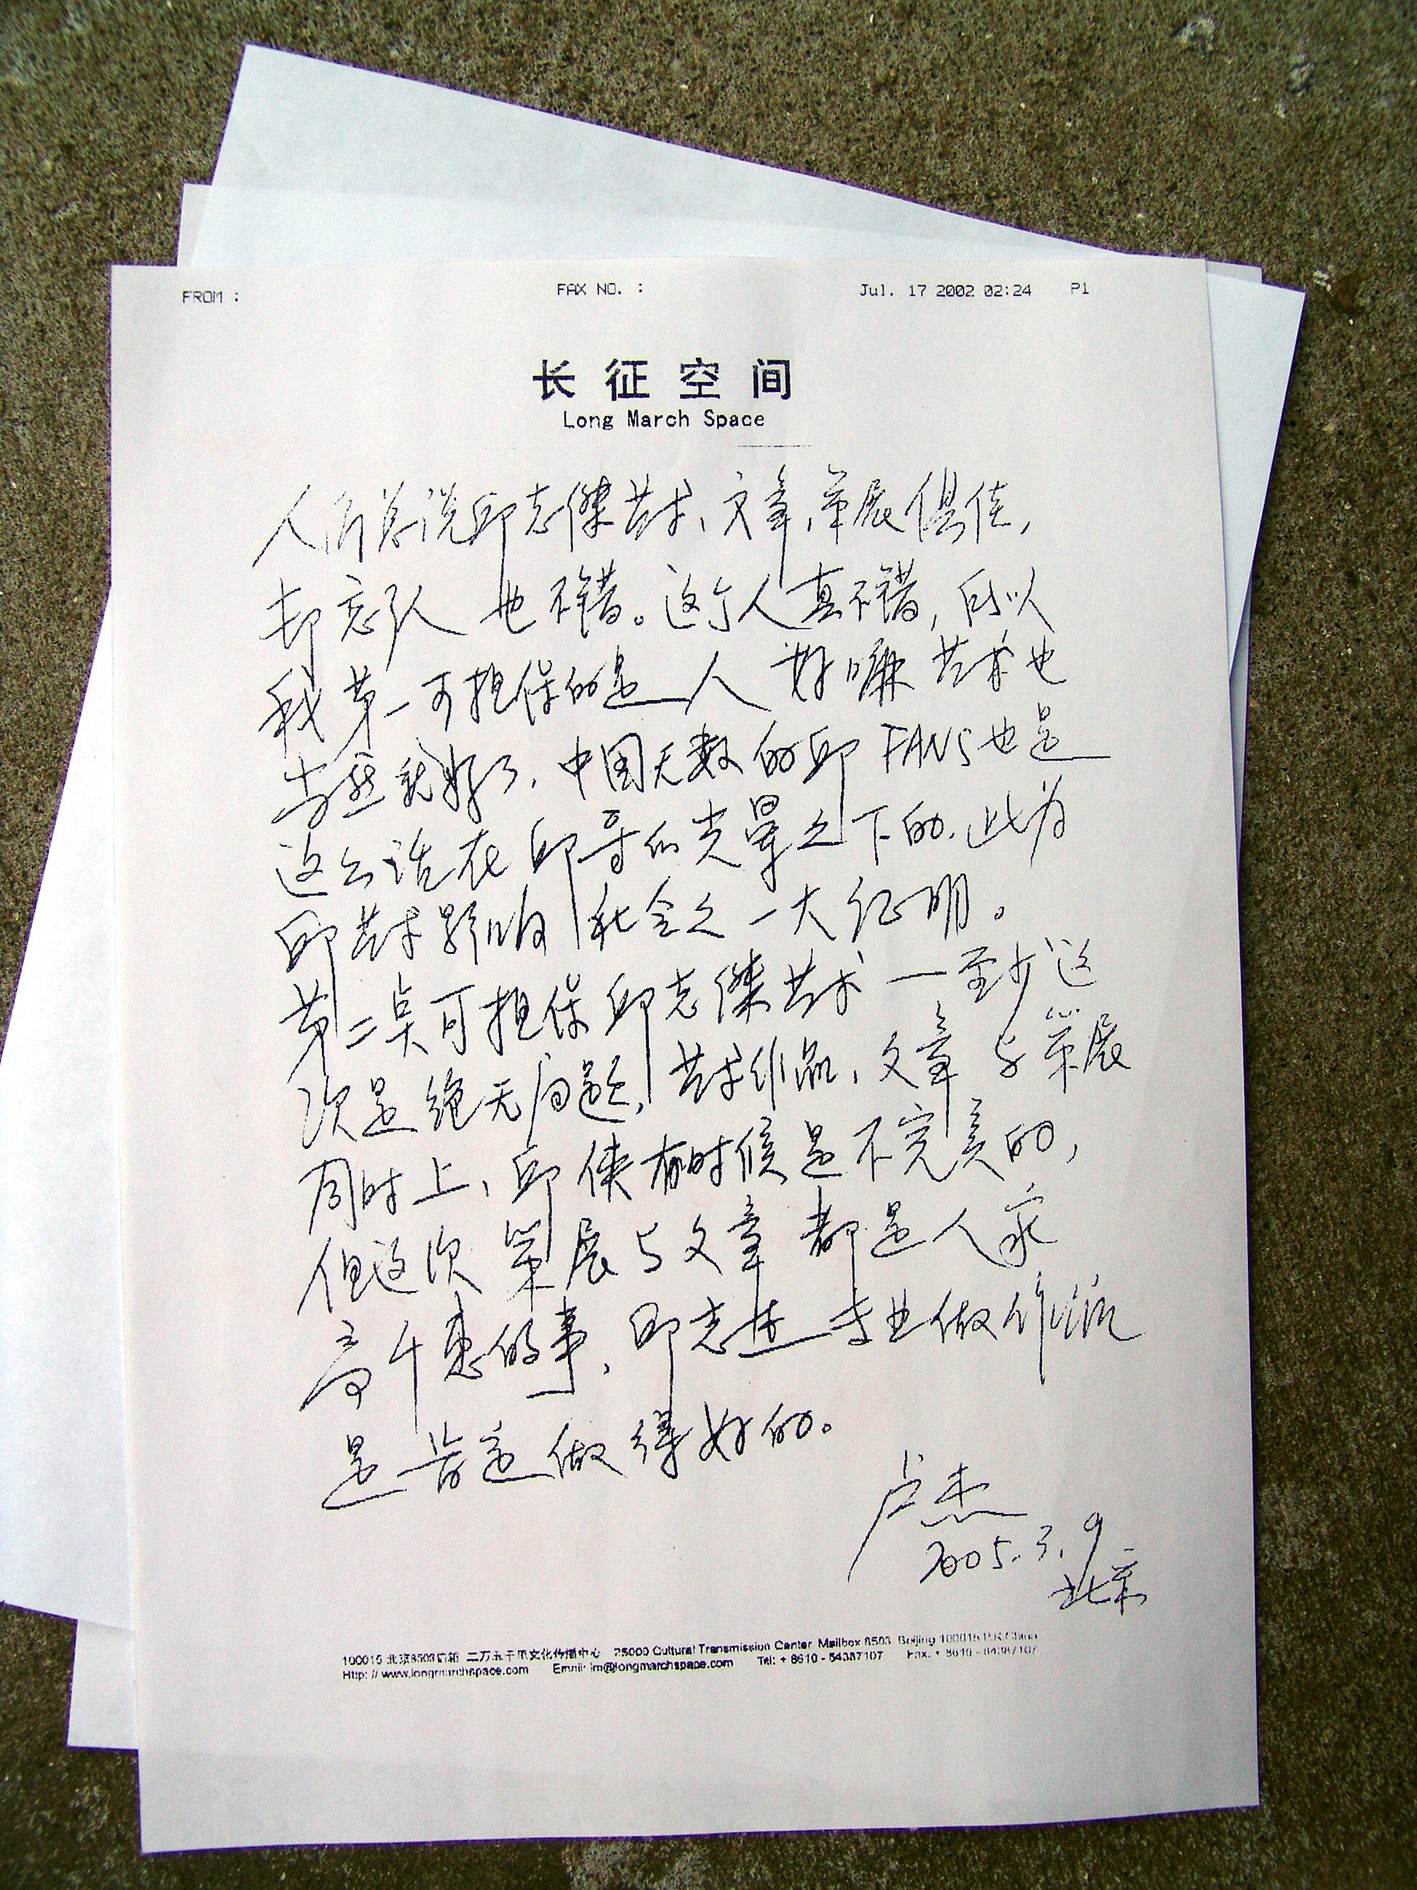 FROM :
FAX NO. :
Jul. 17 2002 02:24 P1
长征空间
Long March Space
人们总说邱志傑艺术、文章、策展俱佳,
却忘了人也不错。这个人真不错,所以
我第一可担保的是人好嘛艺术也
当然就好了.中国无数的邱FANS也是
这么活在邱哥的光晕之下的.此为
邱艺术影响社会之一大证明。
第二点可担保邱志傑艺术—至少这
次是绝无问题,艺术作品、文章与策展
同时上、邱侠有时候是不完美的,
但这次策展与文章都是人家
高千惠的事、邱志杰专业做作品
是肯定做得好的。
卢杰
2005.3.9
北京
100015 北京8503信箱 二万五千里文化传播中心 25000 Cultural Transmission Center Mailbox 8503 Beijing 100015 P.R.China
Http: // www.longmarchspace.com Email: lm@longmarchspace.com Tel: + 8610 - 64387107 Fax: + 8610 - 64387107